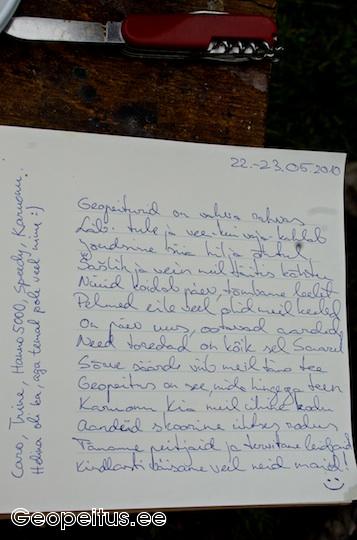 22.-23.05.2010
Geopeiturid on vahva rahvas
Läbi tule ja vee kui vaja kahlab
Jõudsime siia hilja õhtul
Šašlik ja vein meil täitis kõhtu
Nüüd koidab päev, tõmbame keelt
Pehmed eile veel olid meil keeled
On päev uus, ootavad aarded
Need toredad on kõik sel Saarel
Sõrve säärde viib meil täna tee
Geopeitus on see, mida hingega teen
Karmomm kia meil ühine kodu
Aardeid skoorime ühtses rodus
Täname peitjaid ja tervitame leidjaid
Kindlasti täisame veel neid maid!
Caro, Triine, Hanno5000, Speedy, Karmomm.
Helina oli ka, aga temal pole veel nime :)
Geopeitus.ee